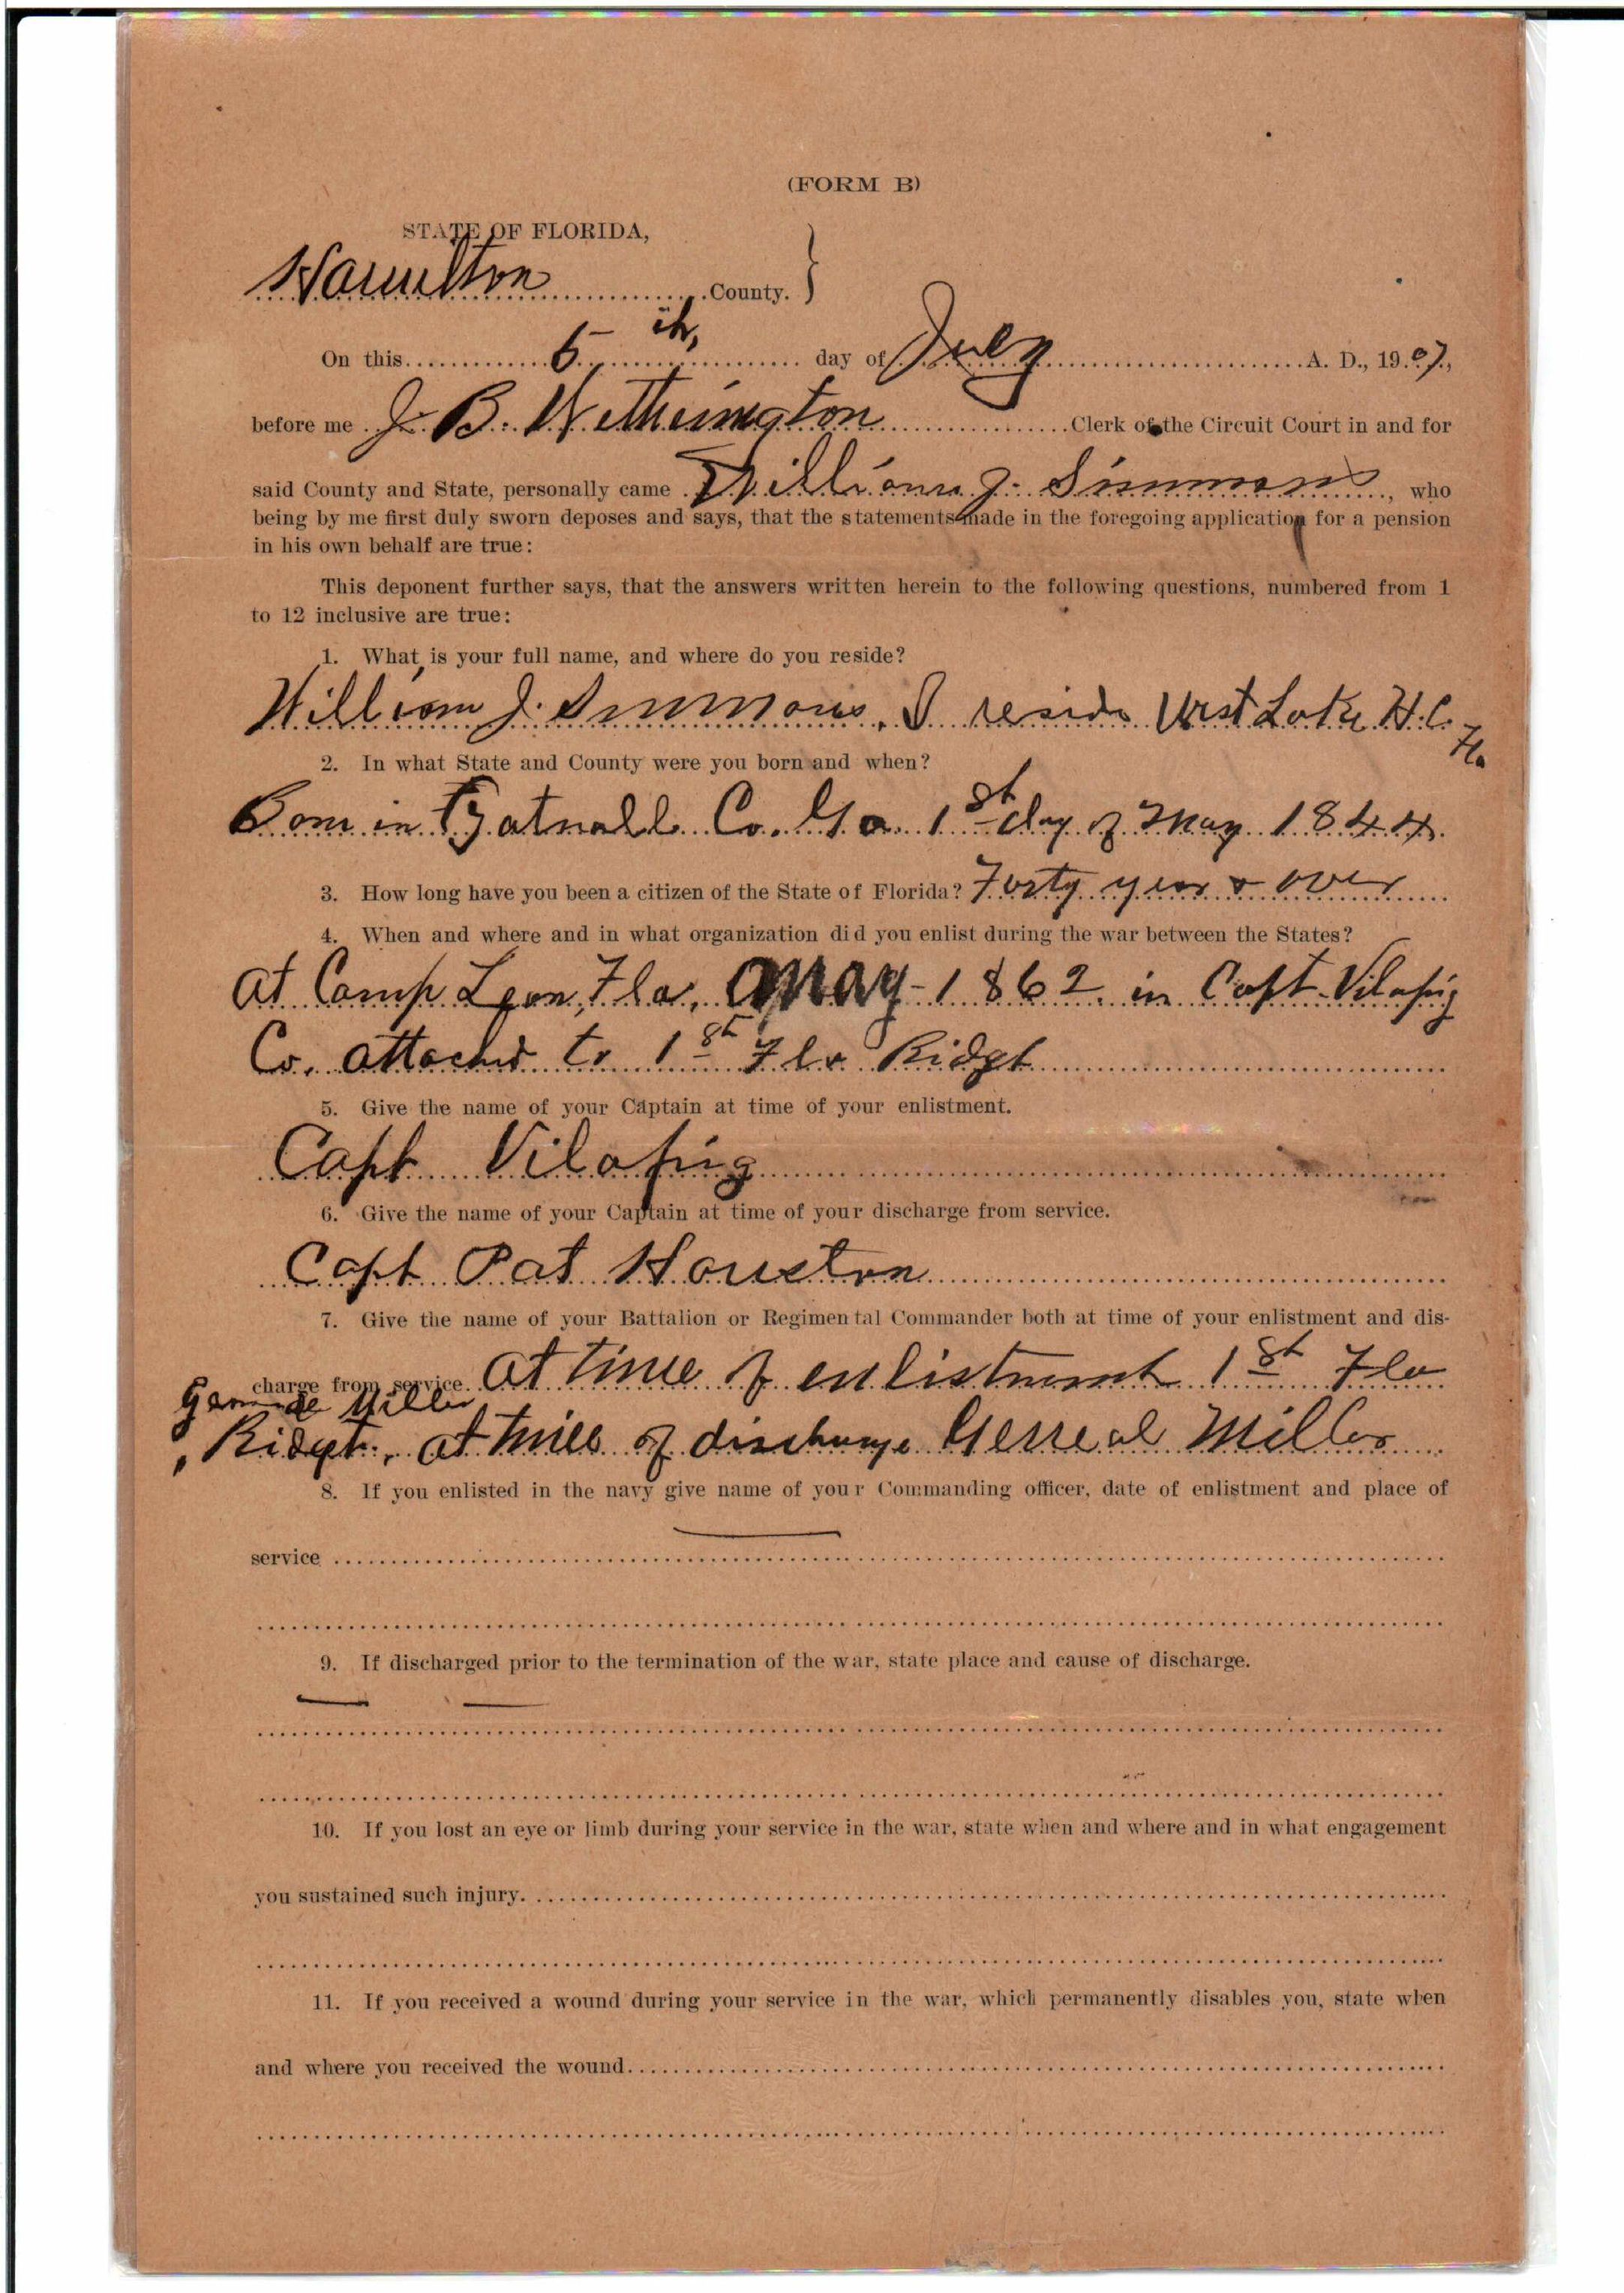 (FORM B)
STATE OF FLORIDA,
Hamilton County.
On this 5th, day of July A. D., 1907,
before me J. B. Wetherington Clerk of the Circuit Court in and for
said County and State, personally came William J. Simmons, who
being by me first duly sworn deposes and says, that the statements made in the foregoing application for a pension
in his own behalf are true:
This deponent further says, that the answers written herein to the following questions, numbered from 1
to 12 inclusive are true:
1. What is your full name, and where do you reside?
William J. Simmons, I reside West Lake H.C.
Fla
2. In what State and County were you born and when?
Born in Tatnall Co. Ga 1st day of May 1844.
3. How long have you been a citizen of the State of Florida? Forty year & over
4. When and where and in what organization did you enlist during the war between the States?
at Camp Leon, Fla, May - 1862 in Capt Vilapig
Co. attached to 1st Fla Ridgt
5. Give the name of your Captain at time of your enlistment.
Capt Vilapig
6. Give the name of your Captain at time of your discharge from service.
Capt Pat Houston
7. Give the name of your Battalion or Regimental Commander both at time of your enlistment and dis-
charge from service. at time of enlistment 1st Fla
Miller
Ridgt. at time of discharge General Miller
8. If you enlisted in the navy give name of your Commanding officer, date of enlistment and place of
service
9. If discharged prior to the termination of the war, state place and cause of discharge.
10. If you lost an eye or limb during your service in the war, state when and where and in what engagement
you sustained such injury.
11. If you received a wound during your service in the war, which permanently disables you, state when
and where you received the wound